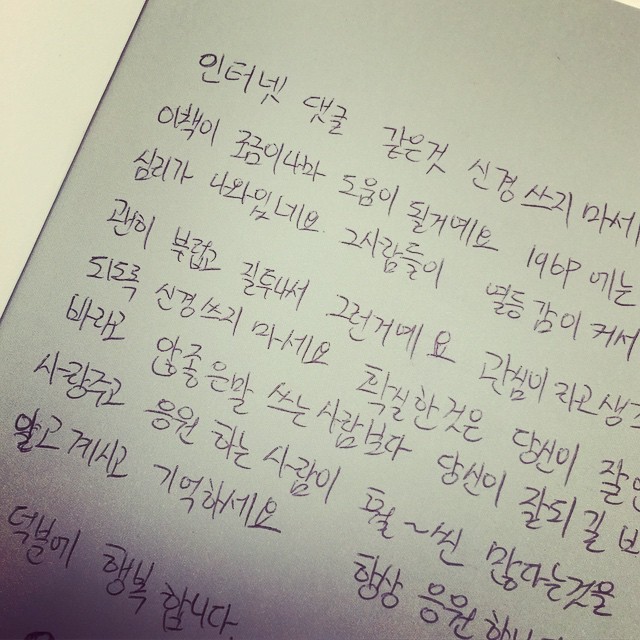 인터넷 댓글 같은것 신경 쓰지 마세
이책이 조금이나마 도움이 될거예요 196P 에는
심리가 나와있네요. 그사람들이 열등감이 커서
괜히 부럽고 질투나서 그런거예요 관심이라고 생
되도록 신경쓰지 마세요 확실한것은 당신이 잘
바라고 않좋은말 쓰는사람보다 당신이 잘되길
사랑주고 응원 하는 사람이 훨~씬 많다는것을
알고계시고 기억하세요 항상 응원
덕분에 행복 합니다.